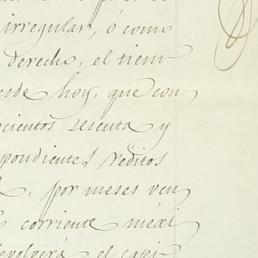 irregular, ó como
derecho, el tiem
esde hoy, que con
ocientos sesenta y
spondientes reditos
por meses ven
corriente mexi
evolverá el capi